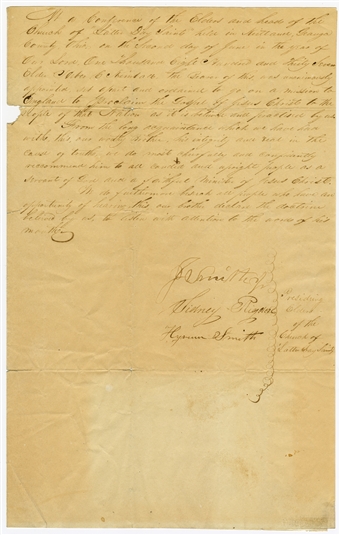 At a Conference of the Elders and heads of the
Church of Latter Day Saints held in Kirtland, Geauga
County Ohio on the Second day of June in the year of
Our Lord One thousand Eight Hundred and thirty Seven
Elder Heber C. Kimball the bearer of this was unanimously
appointed set apart and ordained to go on a mission to
England to proclaim the Gospel of Jesus Christ to the
people of that Nation as it is and practised by us
From the long acquaintance which we have had
with this our worthy brother his integrity and zeal in the
cause of truth, we do most and confidently
recommend him to all candid and upright people as a
servant of God and a faithful minister of Jesus Christ.
We do furthermore beseech all people who have an
opportunity of hearing this our brother declare the doctrine
believed by us to listen with attention to the words of his
mouth
J Smith Jr
Sidney Rigdon
Hyrum Smith
Presiding
Elders
of the
Church of
Latter Day Saints